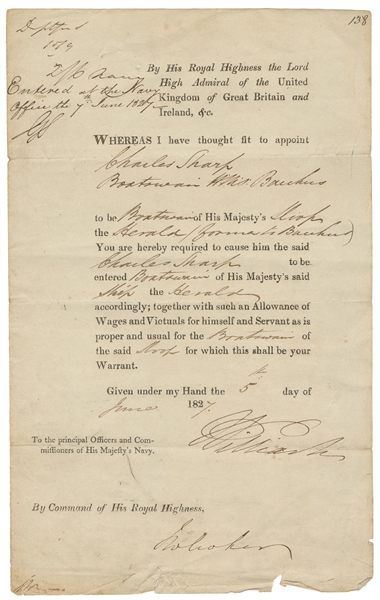 138
Deptford
Entered at the Navy
Office the 7th June 1827
By His Royal Highness the Lord
High Admiral of the United
Kingdom of Great Britain and
Ireland, &c.
WHEREAS I have thought fit to appoint
Charles Sharp
Boatswain
to be Boatswain of His Majesty's Sloop
the Herald (formerly Bacchus)
You are hereby required to cause him the said
Charles Sharp to be
entered Boatswain of His Majesty's said
Ship the Herald
accordingly; together with such an Allowance of
Wages and Victuals for himself and Servant as is
proper and usual for the Boatswain of
the said Sloop for which this shall be your
Warrant.
Given under my Hand the 5th day of
June 1827.
William
To the principal Officers and Com-
missioners of His Majesty's Navy.
By Command of His Royal Highness,